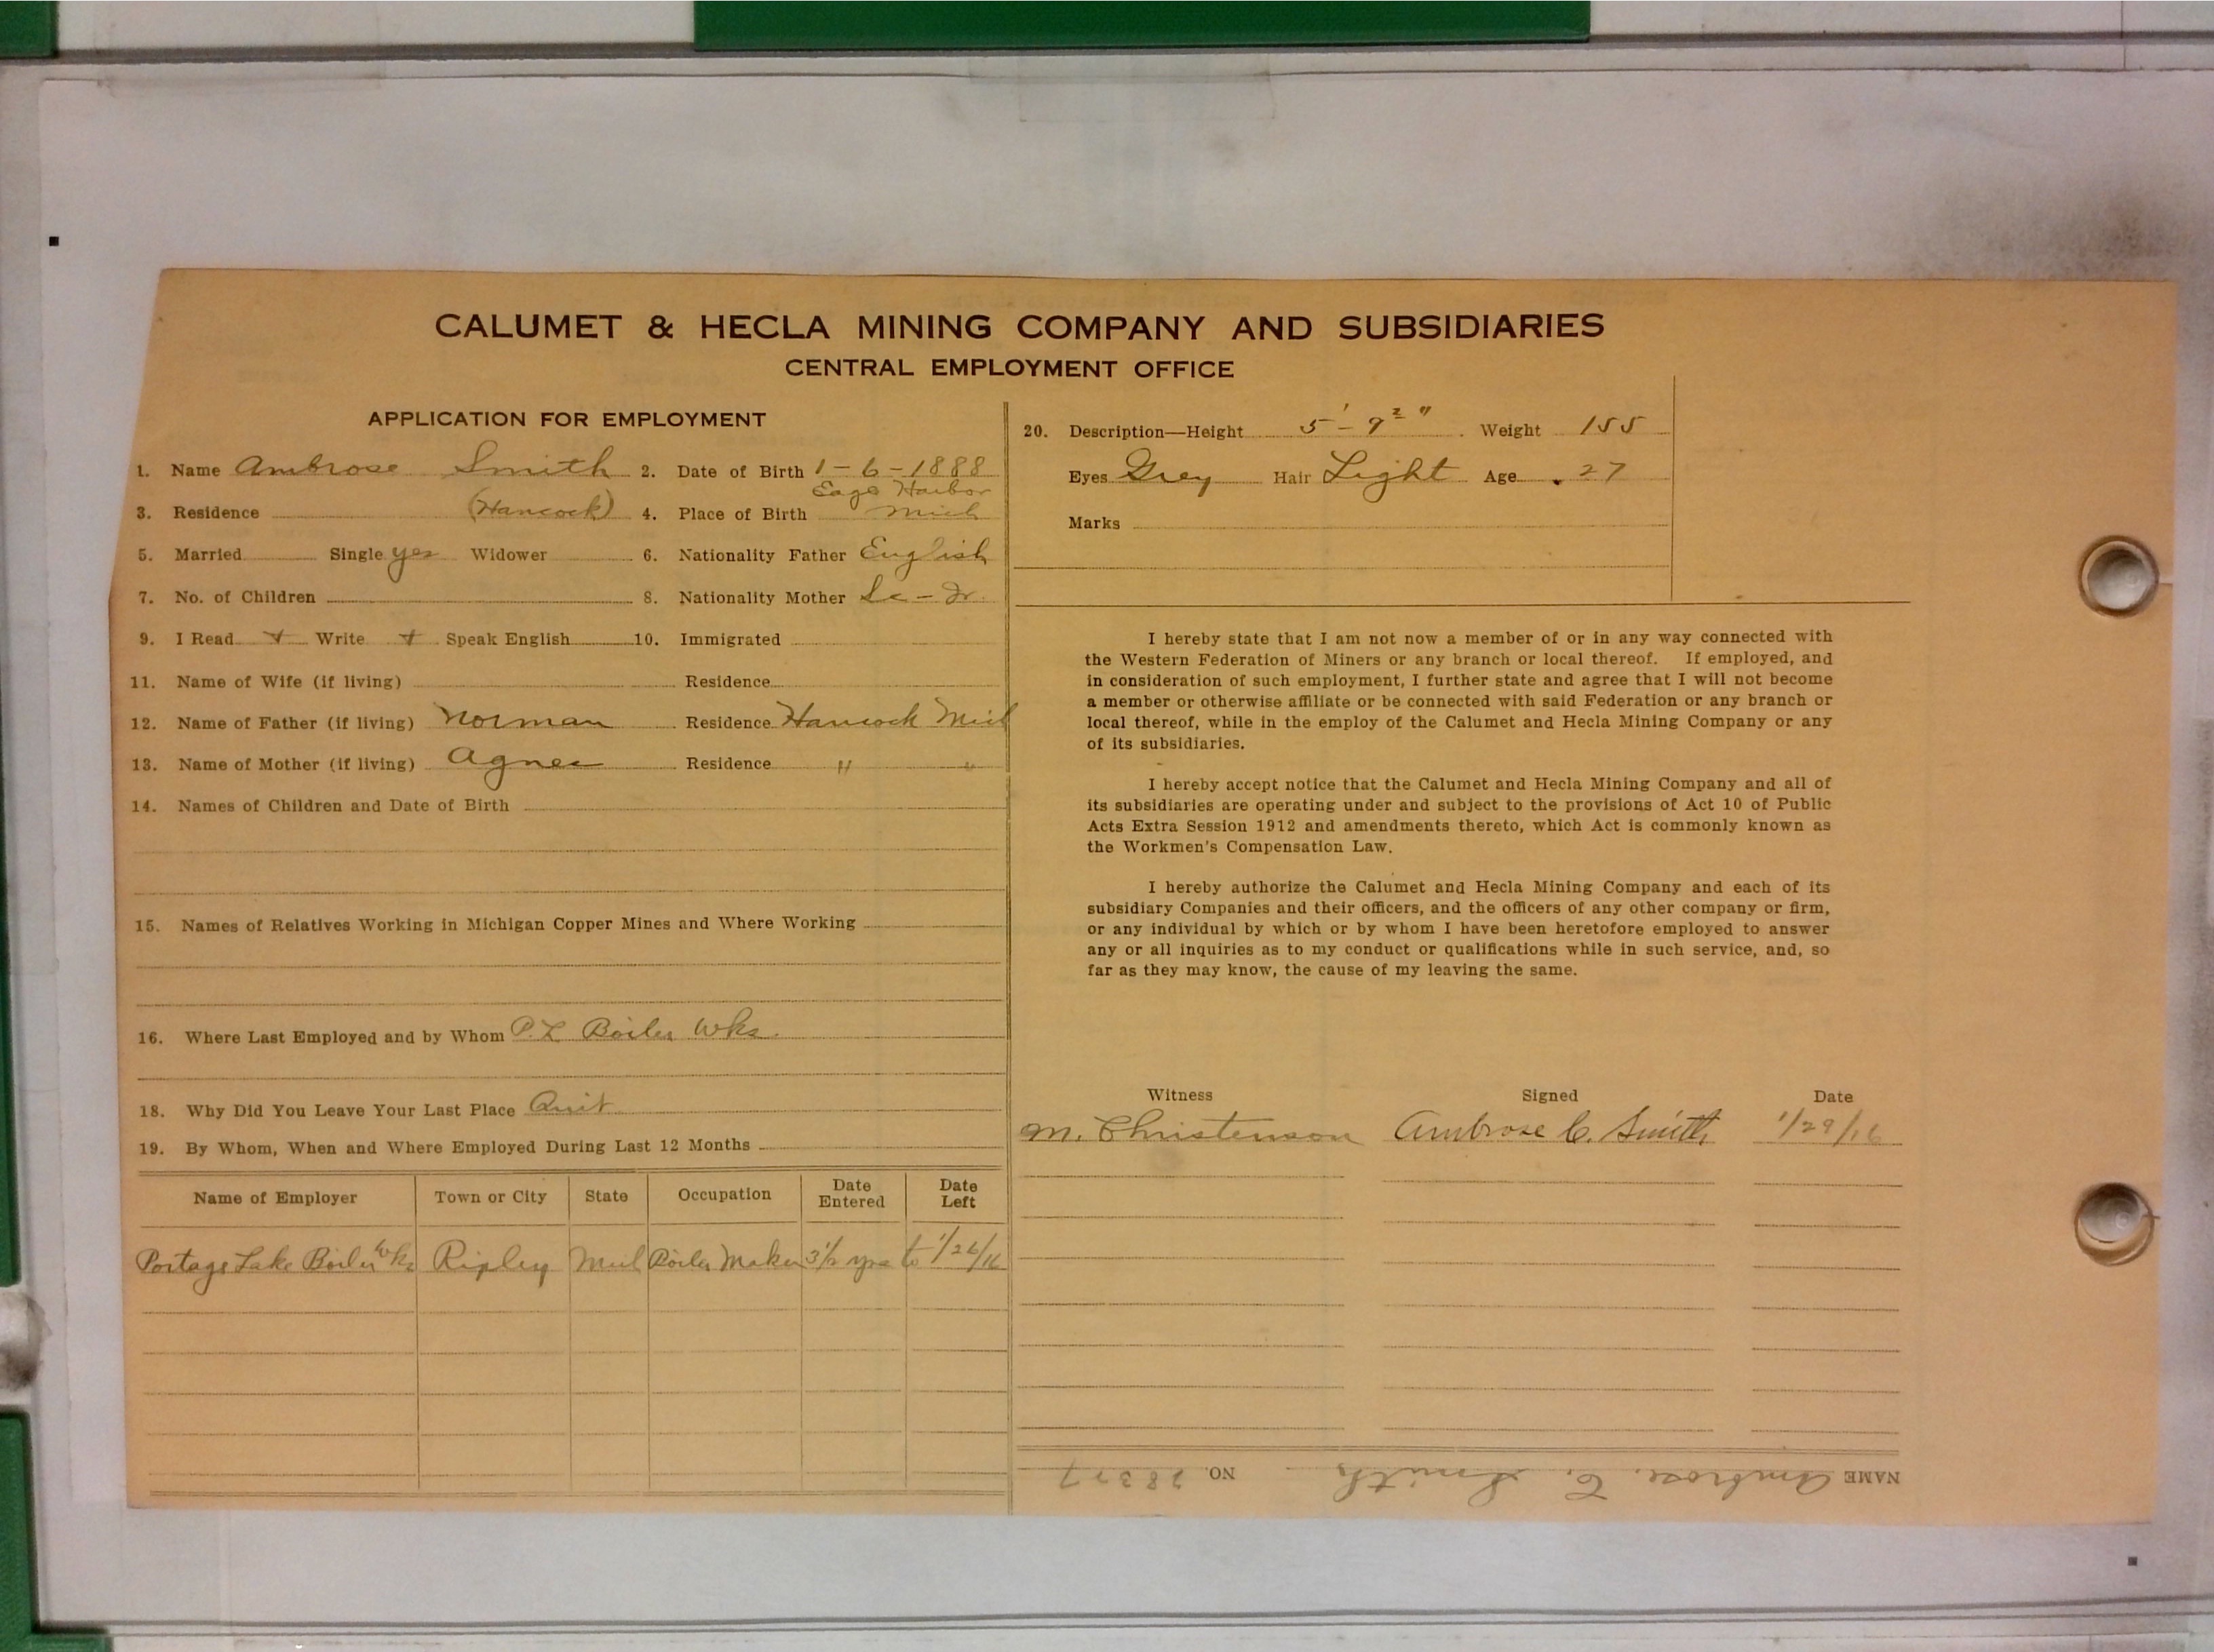 CALUMET & HECLA MINING COMPANY AND SUBSIDIARIES
CENTRAL EMPLOYMENT OFFICE
APPLICATION FOR EMPLOYMENT
1. Name Ambrose Smith 2. Date of Birth 1-6-1888
3. Residence (Hancock) 4. Place of Birth Eage Harbor Mich
5. Married Single yes Widower 6. Nationality Father English
7. No. of Children 8. Nationality Mother Sc-Ir.
9. I Read + Write + Speak English 10. Immigrated
11. Name of Wife (if living) Residence
12. Name of Father (if living) Norman Residence Hancock Mich
13. Name of Mother (if living) Agnes Residence " "
14. Names of Children and Date of Birth
15. Names of Relatives Working in Michigan Copper Mines and Where Working
16. Where Last Employed and by Whom P.L Boiler Wks.
18. Why Did You Leave Your Last Place Quit
19. By Whom, When and Where Employed During Last 12 Months
Name of Employer Town or City State Occupation Date Entered Date Left
Portage Lake Boiler Wks Ripley Mich Boiler Maker 3 1/2 yrs to 1/26/16
20. Description—Height 5'-9 2" Weight 155
Eyes Grey Hair Light Age 27
Marks
I hereby state that I am not now a member of or in any way connected with
the Western Federation of Miners or any branch or local thereof. If employed, and
in consideration of such employment, I further state and agree that I will not become
a member or otherwise affiliate or be connected with said Federation or any branch or
local thereof, while in the employ of the Calumet and Hecla Mining Company or any
of its subsidiaries.
I hereby accept notice that the Calumet and Hecla Mining Company and all of
its subsidiaries are operating under and subject to the provisions of Act 10 of Public
Acts Extra Session 1912 and amendments thereto, which Act is commonly known as
the Workmen's Compensation Law.
I hereby authorize the Calumet and Hecla Mining Company and each of its
subsidiary Companies and their officers, and the officers of any other company or firm,
or any individual by which or by whom I have been heretofore employed to answer
any or all inquiries as to my conduct or qualifications while in such service, and, so
far as they may know, the cause of my leaving the same.
Witness Signed Date
M. Christenson Ambrose C. Smith 1/29/16
NAME Ambrose C. Smith NO. 28377